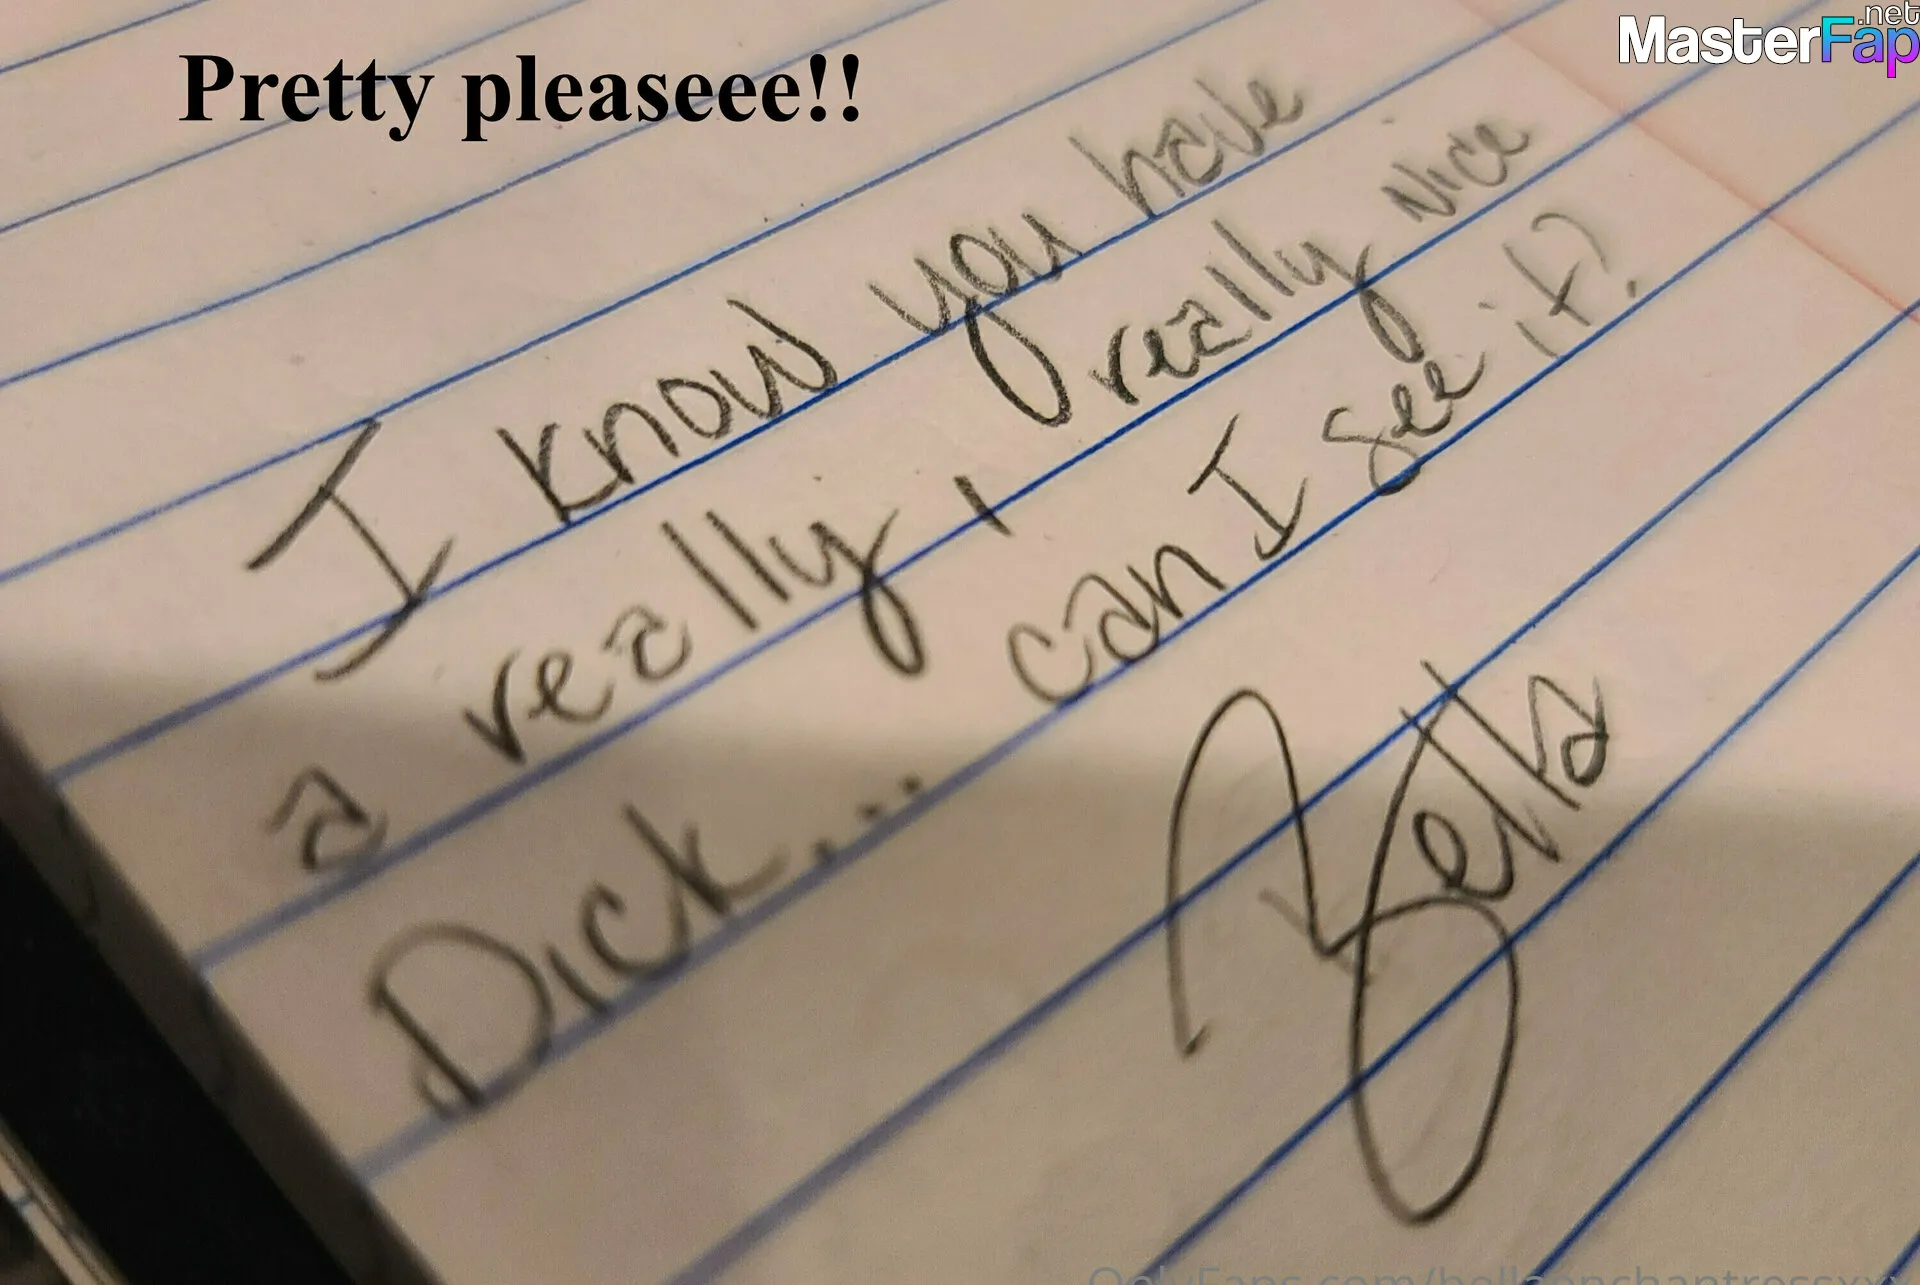 .net
MasterFap
Pretty pleaseee!!
I know you have
a really, really nice
Dick.... can I see it?
Bella